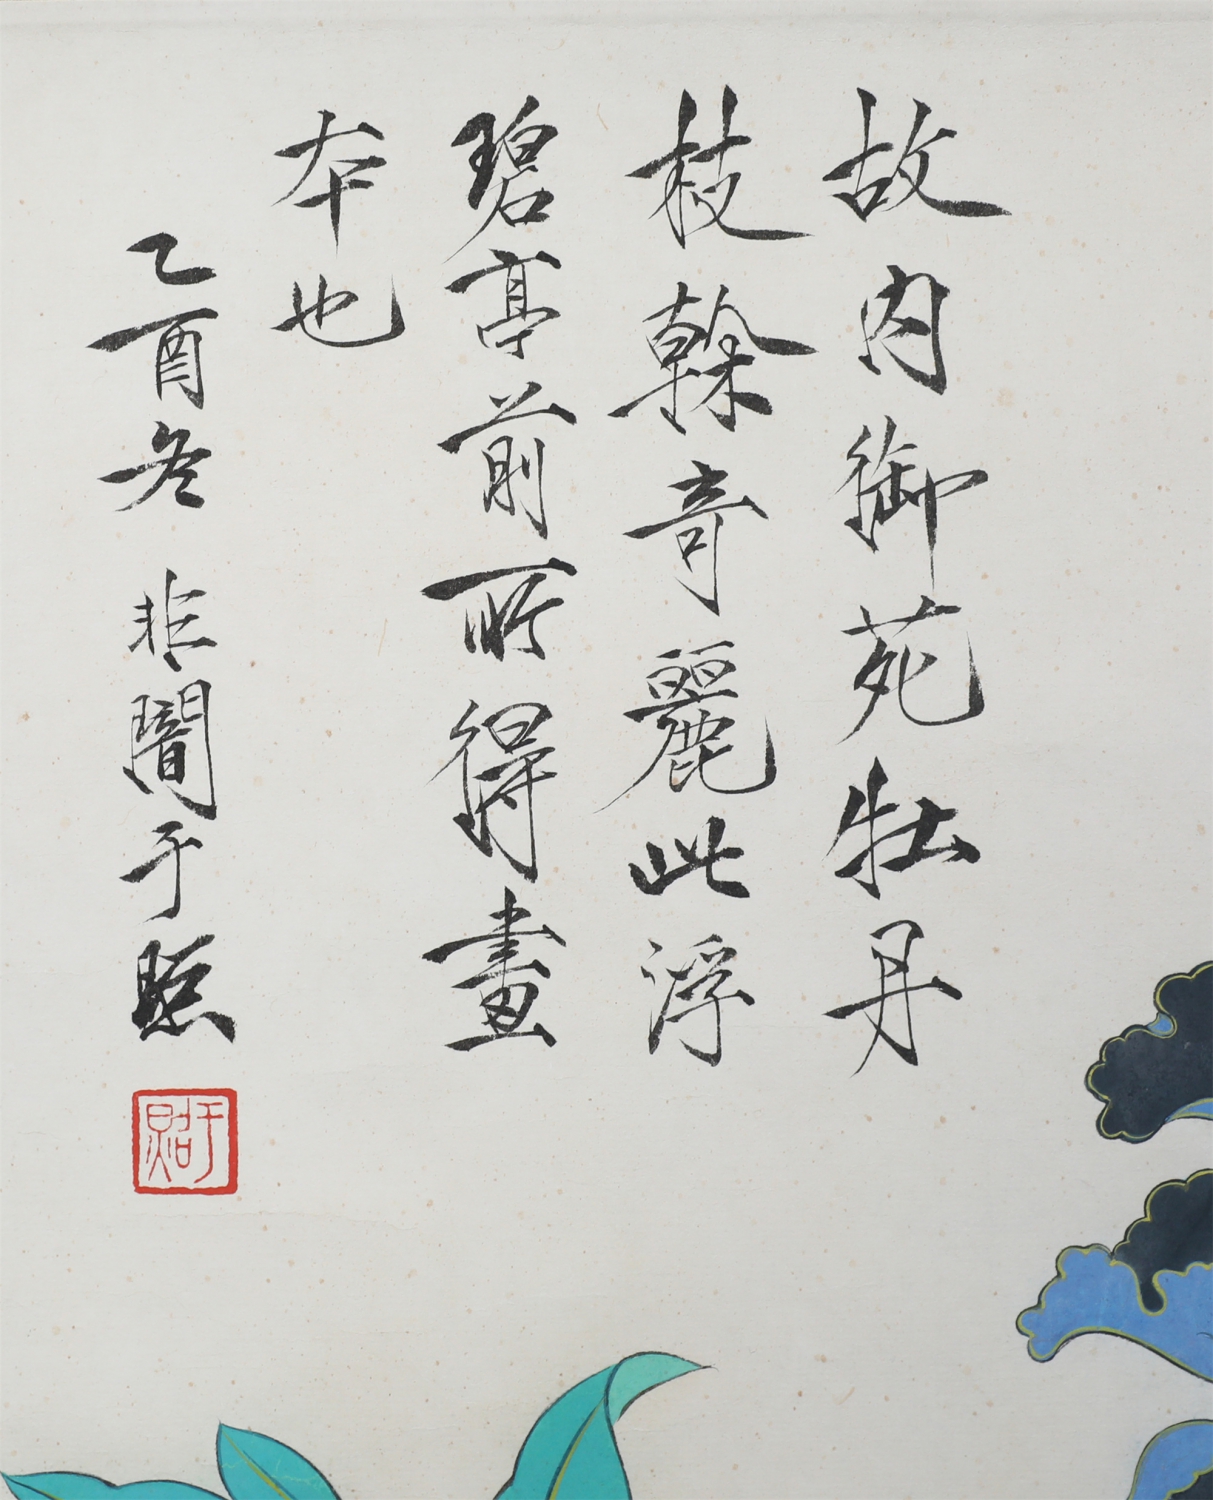 故内御苑牡丹
枝榦奇麗此浮
碧亭前所得畫
本也
乙酉冬 非闇于照
于照